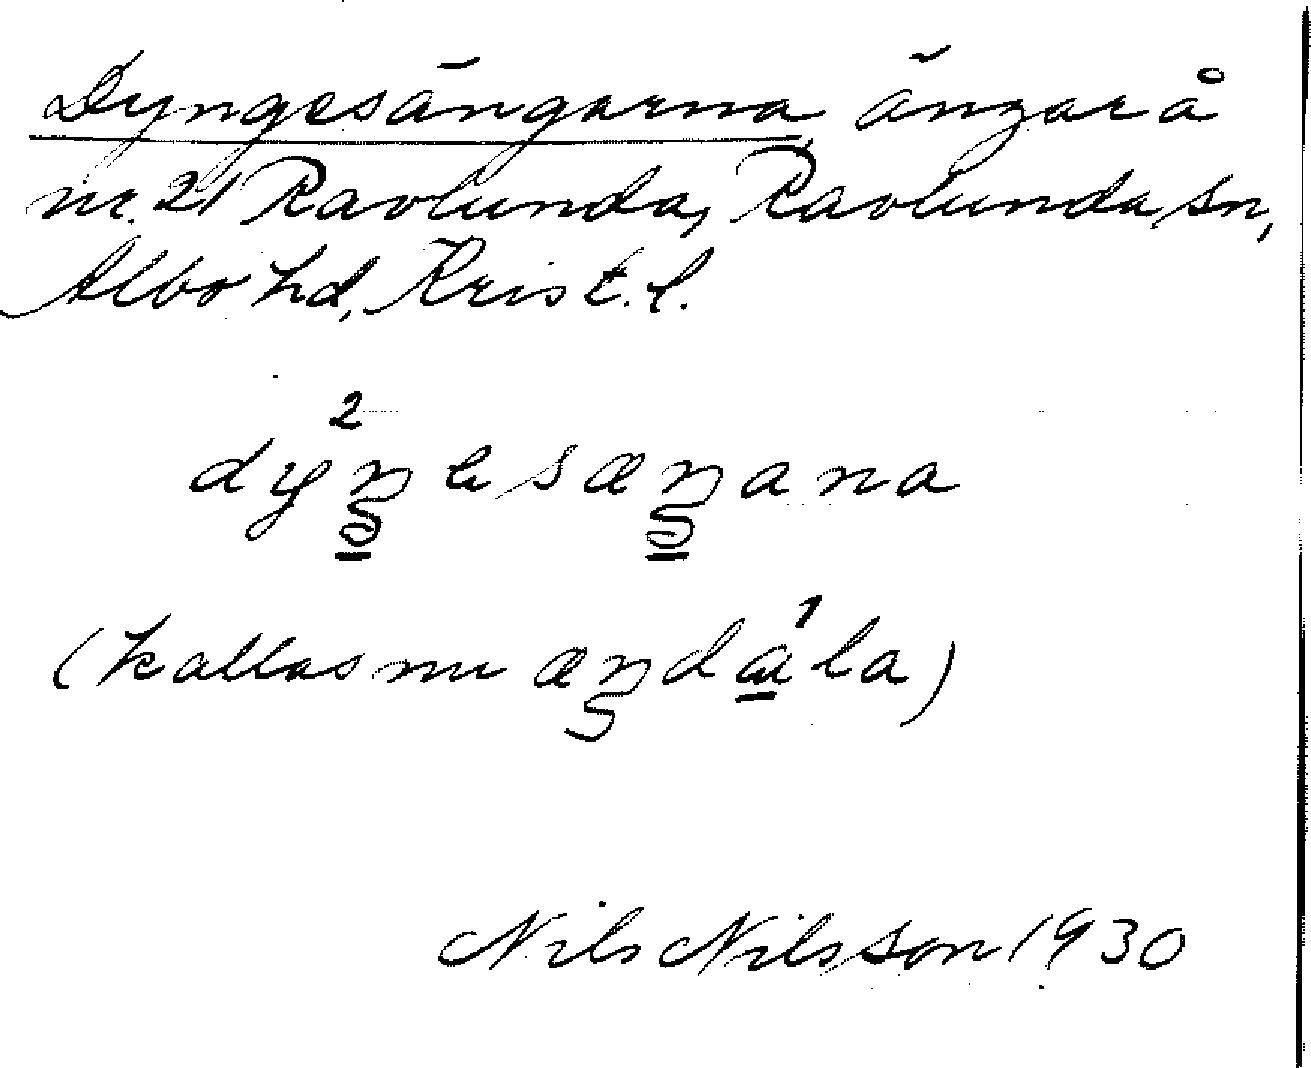 Dyngesängarna, ängar å
nr. 21 Ravlunda, Ravlunda sn,
Albo hd, Krist. l.
2
dyŋesæŋana
(kallas nu æŋdala)
Nils Nilsson 1930